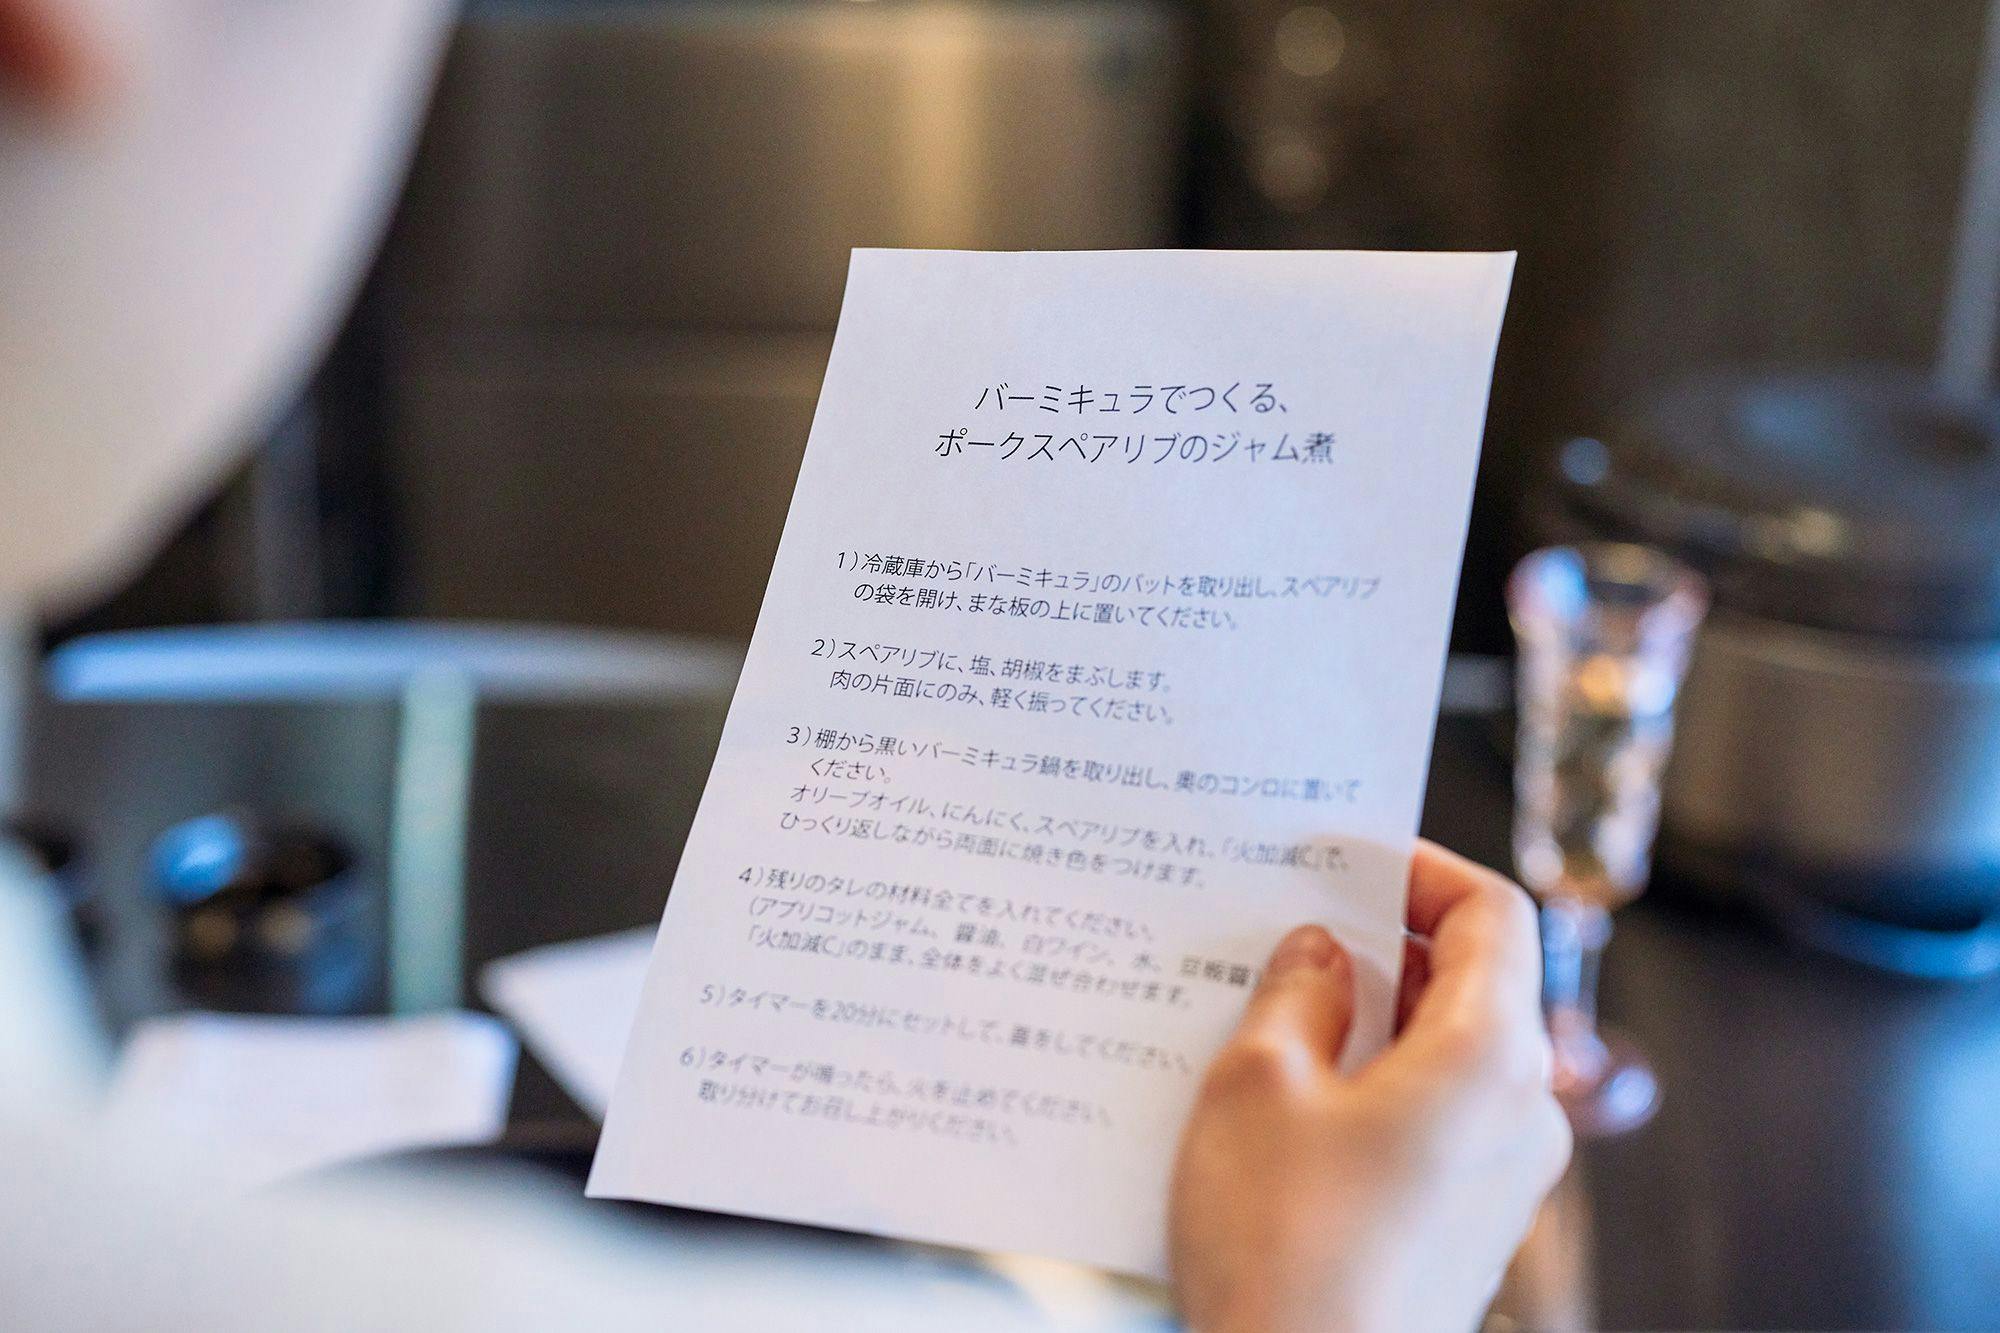 バーミキュラでつくる、
ポークスペアリブのジャム煮
1）冷蔵庫から「バーミキュラ」のバットを取り出し、スペアリブ
の袋を開け、まな板の上に置いてください。
2）スペアリブに、塩、胡椒をまぶします。
肉の片面にのみ、軽く振ってください。
3）棚から黒いバーミキュラ鍋を取り出し、奥のコンロに置いて
ください。
オリーブオイル、にんにく、スペアリブを入れ、「火加減C」で、
ひっくり返しながら両面に焼き色をつけます。
4）残りのタレの材料全てを入れてください。
（アプリコットジャム、醤油、白ワイン、水、豆板醤
「火加減C」のまま、全体をよく混ぜ合わせます。
5）タイマーを20分にセットして、蓋をしてください。
6）タイマーが鳴ったら、火を止めてください。
取り分けてお召し上がりください。